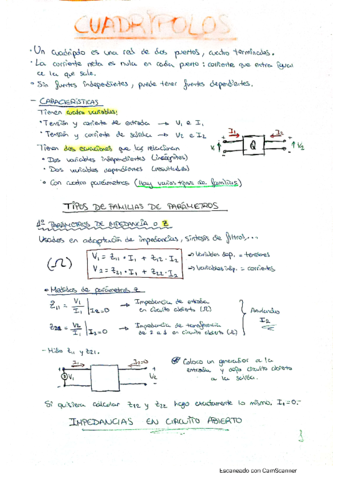 CUADRIPOLOS
· Un cuadripolo es una red de dos puertos, cuatro terminales.
· La corriente neta es nula en cada puerto: corriente que entra igual
de la que sale.
· Sin fuentes independientes, puede tener fuentes dependientes.
- CARACTERÍSTICAS
Tienen cuatro variables:
· Tensión y corriente de entrada → V1 e I1
· Tensión y corriente de salida → V2 e I2
Tienen dos ecuaciones que los relacionan
· Dos variables independientes (incógnitas)
· Dos variables dependientes (resultados)
· Con cuatro parámetros (hay varios tipos de familias)
I1 I2
V1 Q V2
TIPOS DE FAMILIAS DE PARÁMETROS
1º PARÁMETROS DE IMPEDANCIA O Z
Usados en adaptación de impedancias, síntesis de filtros...
(Ω)
V1 = Z11 · I1 + Z12 · I2
V2 = Z21 · I1 + Z22 · I2
→ Variables dep. = tensiones
→ Variables indep. = corrientes
· Medidas de parámetros Z
Z11 = V1/I1 | I2=0 → Impedancia de entrada
en circuito abierto (Ω)
Z21 = V2/I1 | I2=0 → Impedancia de transferencia
en circuito abierto (Ω)
Anulando
I2
- Mido Z11 y Z21.
I1 I2=0
V1 V2
Coloco un generador a la
entrada y dejo circuito abierto
a la salida.
Si quisiera calcular Z12 y Z22 hago exactamente lo mismo, I1=0.
IMPEDANCIAS EN CIRCUITO ABIERTO
Escaneado con CamScanner